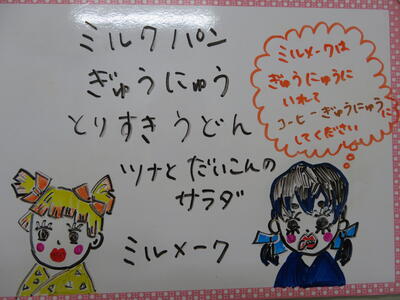 ミルクパン
ぎゅうにゅう
とりすきうどん
ツナとだいこんの
サラダ
ミルメーク
ミルメークは
ぎゅうにゅうに
いれて
コーヒーぎゅうにゅうに
してください